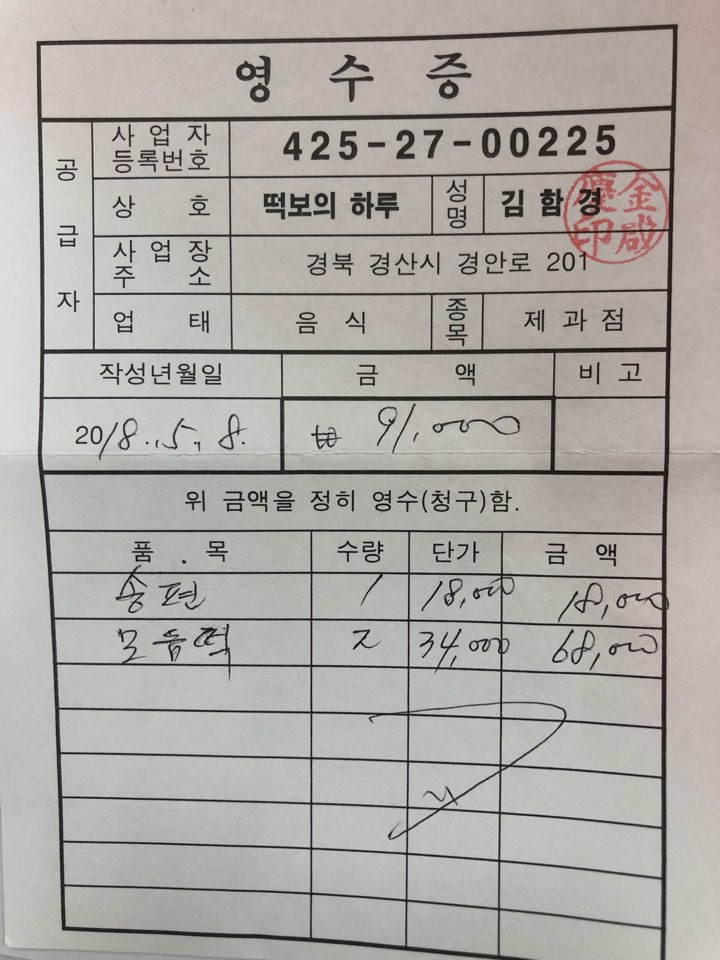 영 수 증
공급자
사업자등록번호 425-27-00225
상 호 떡보의 하루 성명 김함경
金咸慶印
사업장주소 경북 경산시 경안로 201
업 태 음 식 종목 제과점
작성년월일 금 액 비 고
2018.5.8. ₩ 91,000
위 금액을 정히 영수(청구)함.
품 . 목 수량 단가 금 액
송편 1 18,000 18,000
모듬떡 2 34,000 68,000